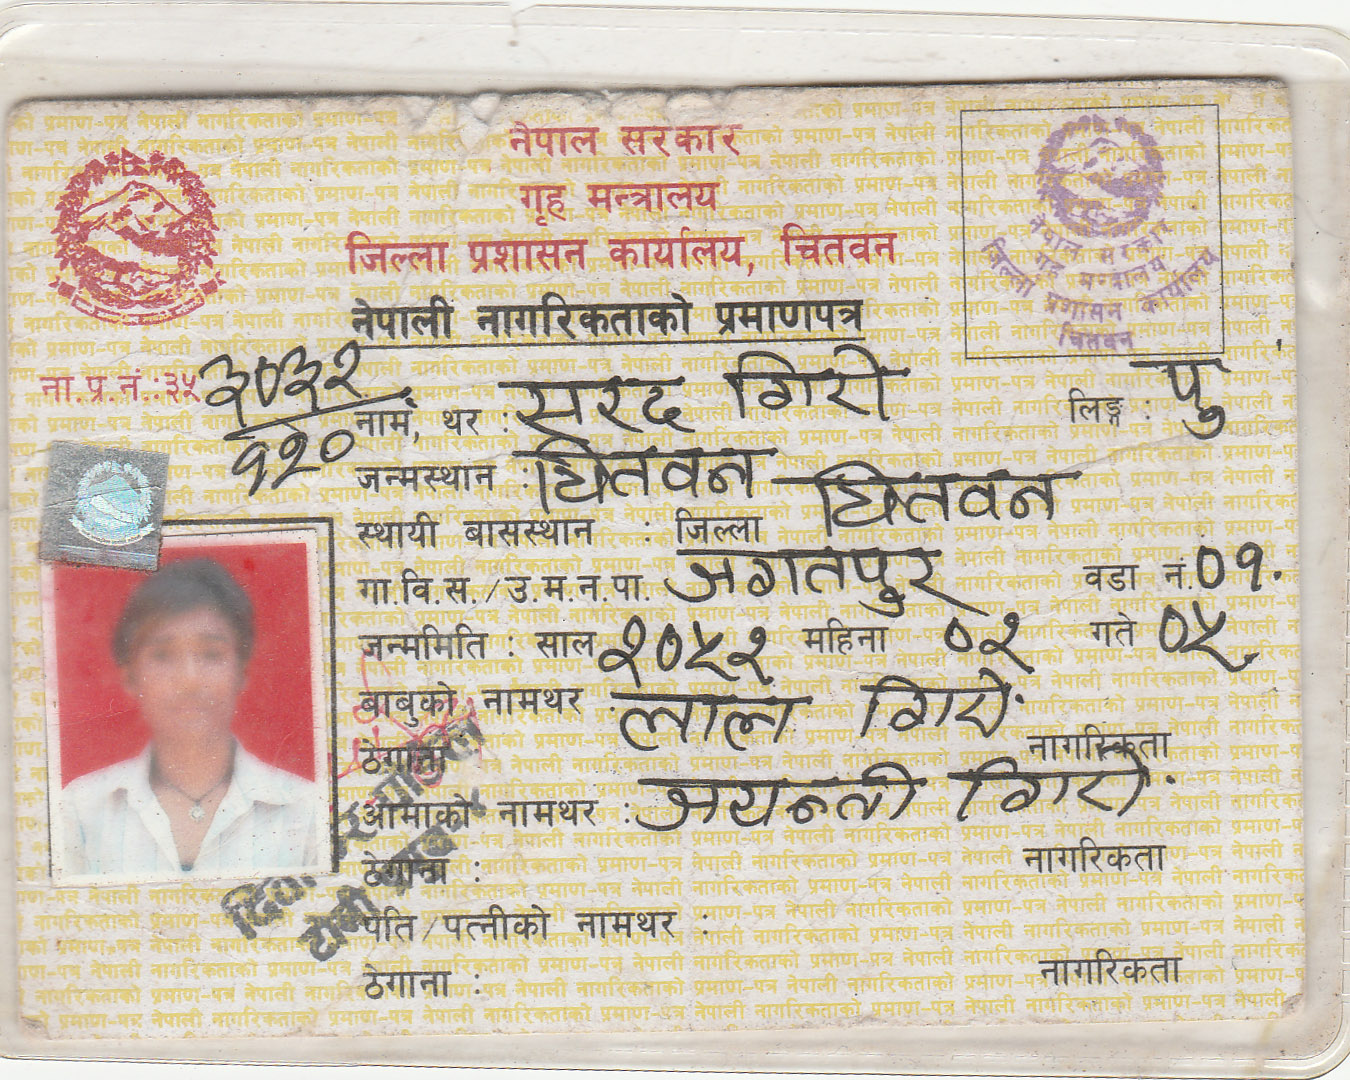 नेपाल सरकार
गृह मन्त्रालय
जिल्ला प्रशासन कार्यालय, चितवन
नेपाल सरकार
गृह मन्त्रालय
जिल्ला प्रशासन कार्यालय
चितवन
नेपाली नागरिकताको प्रमाणपत्र
ना.प्र.नं.:३५ ३०३२/११०
नाम, थर : सरद गिरी लिङ्ग : पु
जन्मस्थान : चितवन
स्थायी बासस्थान : जिल्ला चितवन
गा.वि.स./उ.म.न.पा. जगतपुर वडा नं. ०१.
जन्ममिति : साल २०५२ महिना ०२ गते ०५
बाबुको नामथर : लाल गिरी
ठेगाना नागरिकता
आमाको नामथर : जयन्ती गिरी
ठेगाना : नागरिकता
पति/पत्नीको नामथर :
ठेगाना : नागरिकता